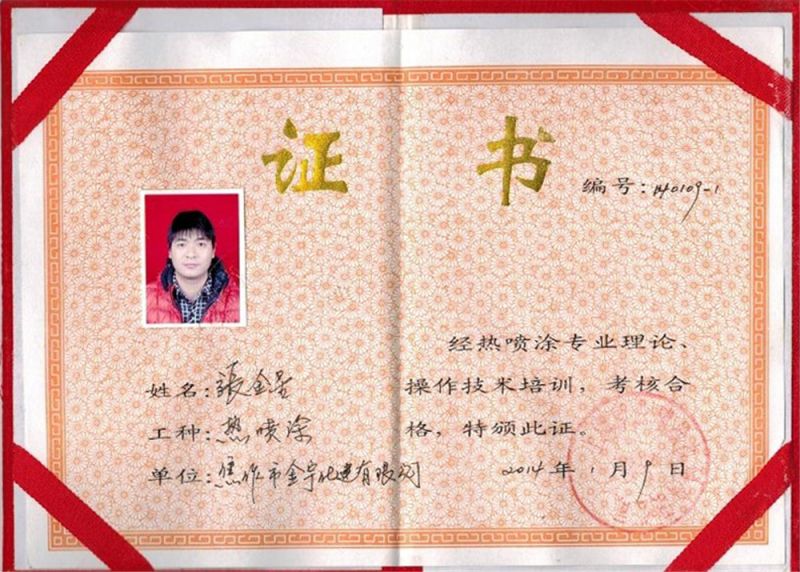 证书
编号：140109-1
姓名：張金星
工种：热喷涂
单位：焦作市金宇化建有限公司
经热喷涂专业理论、
操作技术培训，考核合
格，特颁此证。
2014年1月9日